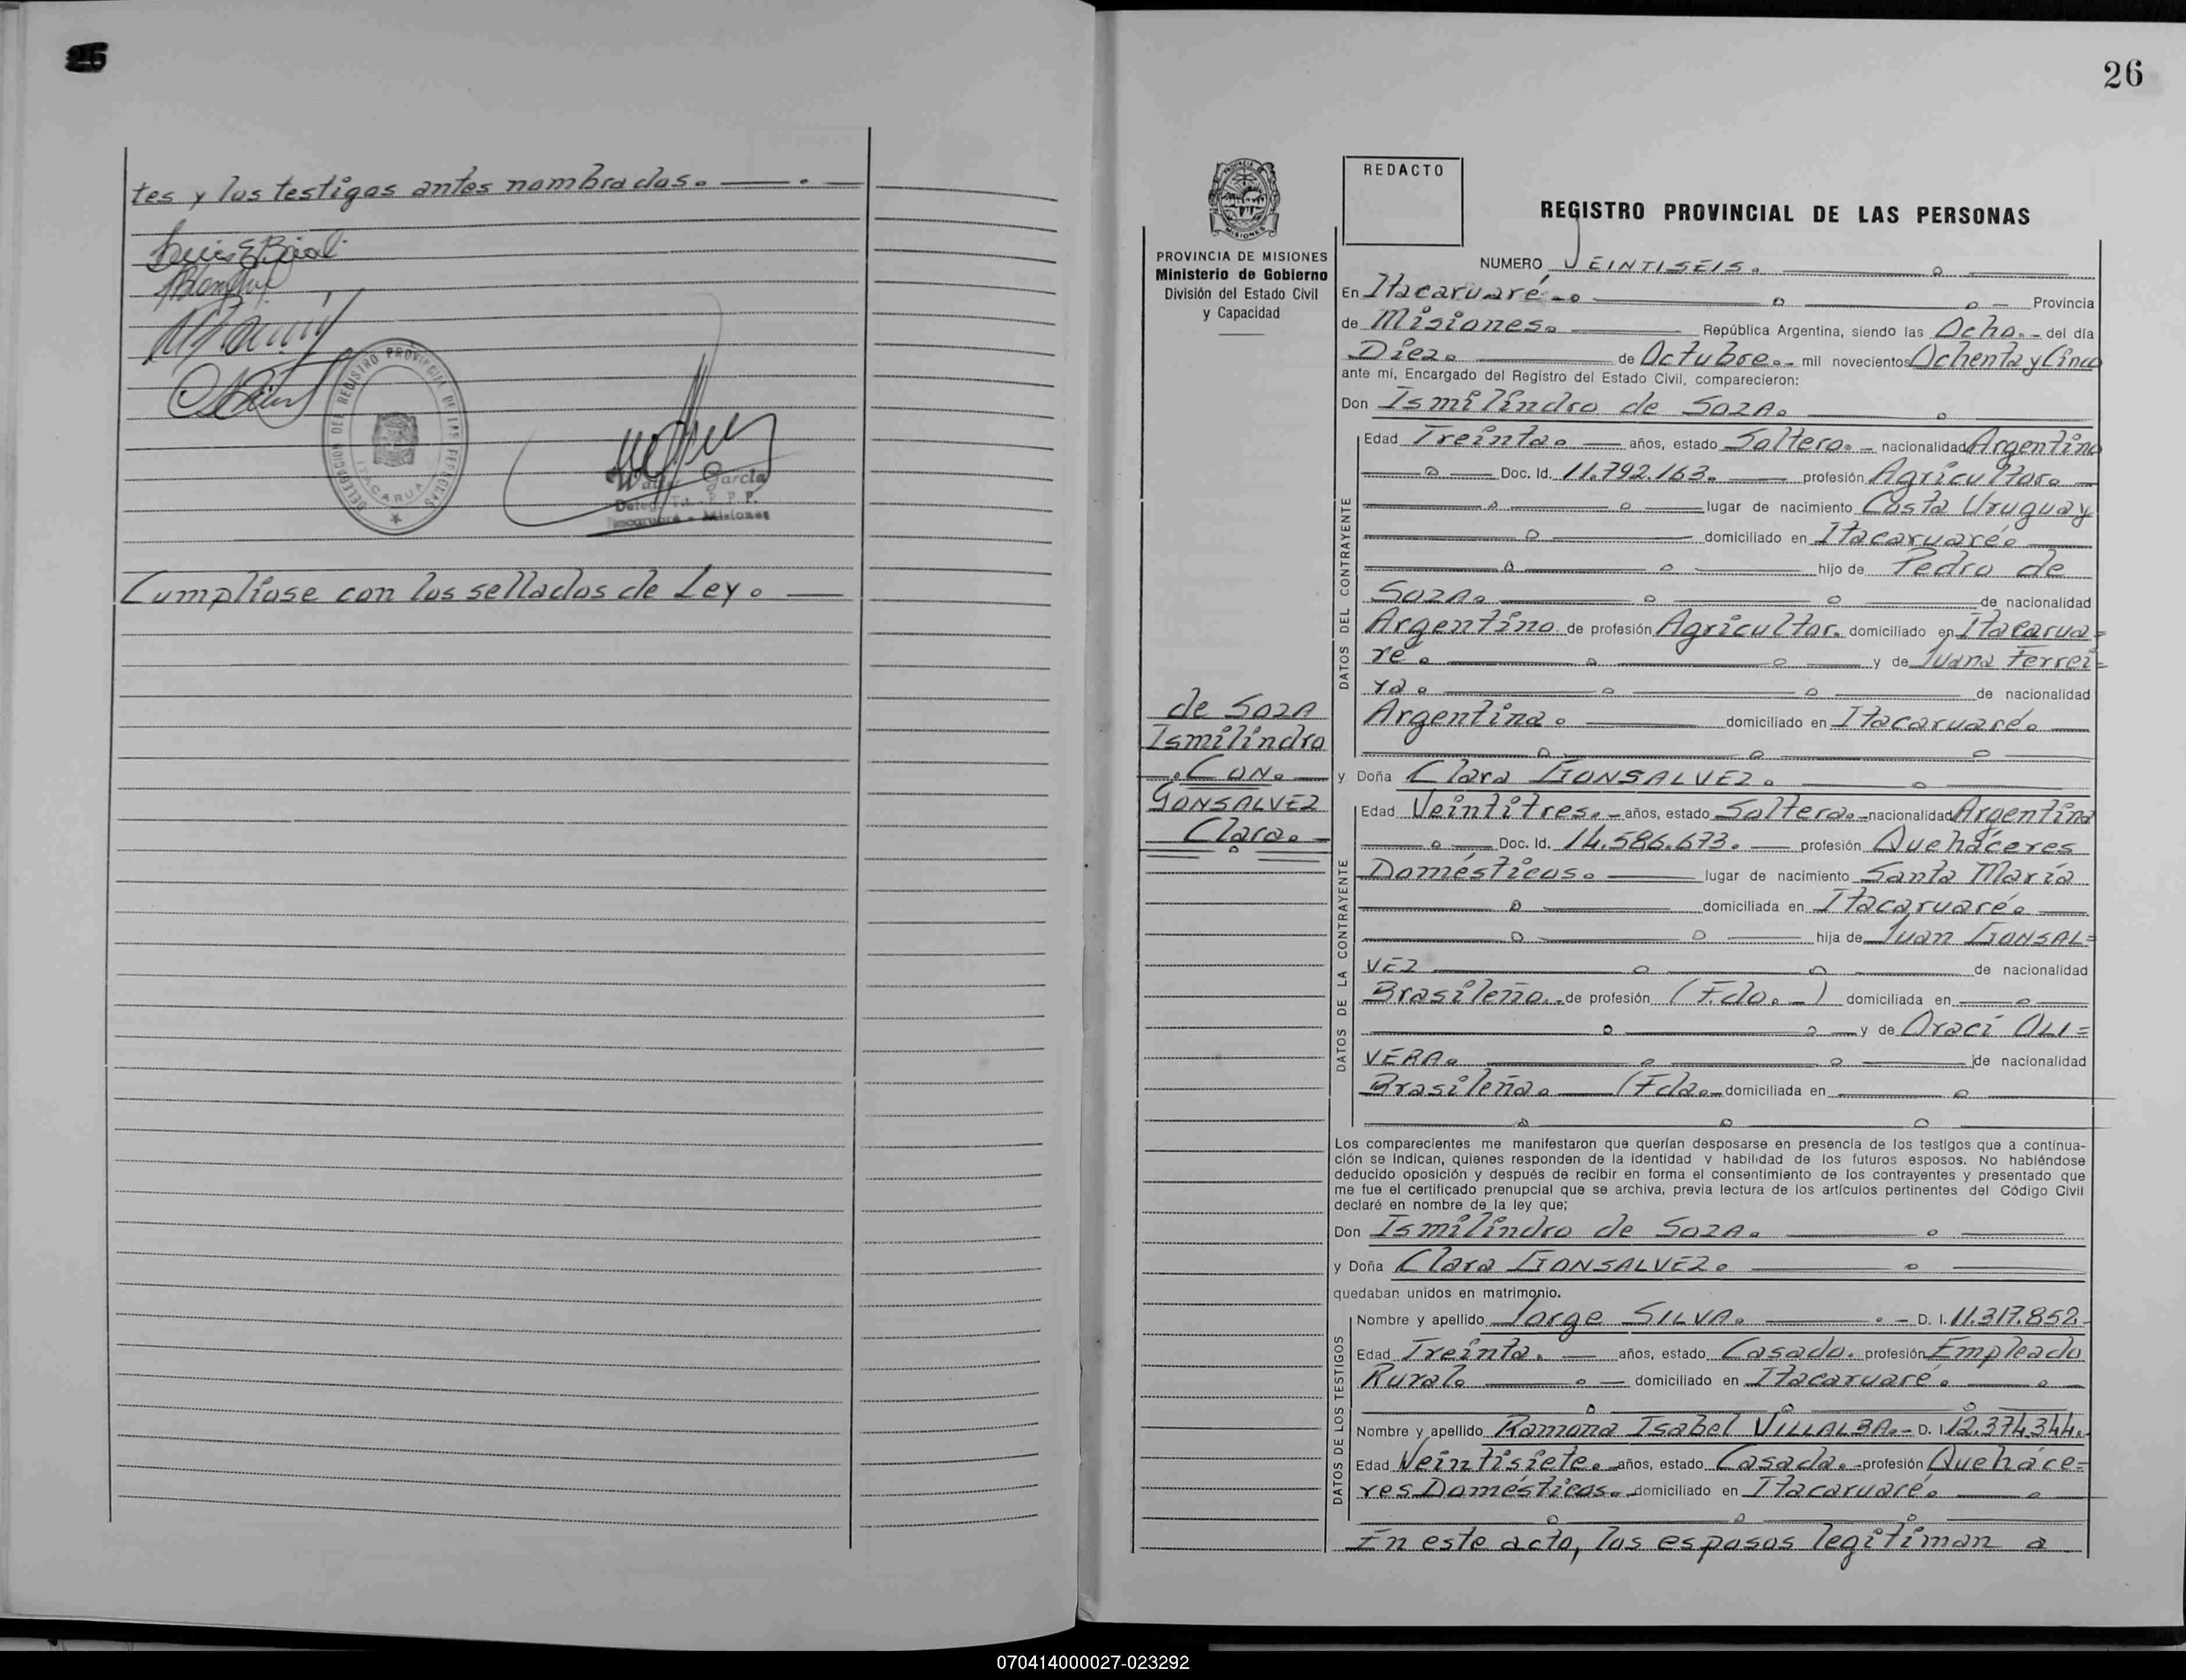 26
tes y los testigos antes nombrados.
DELEGACION DEL REGISTRO PROVINCIAL DE LAS PERSONAS
ITACARUARE
García
Deleg. Tit. R. P. P.
Itacaruaré - Misiones
Cumpliose con los sellados de Ley.
PROVINCIA DE MISIONES
Ministerio de Gobierno
División del Estado Civil
y Capacidad
de SOZA
Ismilindro
CON.
GONSALVEZ
Clara.
REDACTO
REGISTRO PROVINCIAL DE LAS PERSONAS
NUMERO VEINTISÉIS.
En Itacaruaré. Provincia
de Misiones. República Argentina, siendo las Ocho. del día
Diez. de Octubre. mil novecientos Ochenta y Cinco
ante mí, Encargado del Registro del Estado Civil, comparecieron:
Don Ismilindro de SOZA.
DATOS DEL CONTRAYENTE
Edad Treinta. años, estado Soltero. nacionalidad Argentino
Doc. Id. 11.792.163. profesión Agricultor.
lugar de nacimiento Costa Uruguay
domiciliado en Itacaruaré.
hijo de Pedro de
SOZA. de nacionalidad
Argentino. de profesión Agricultor. domiciliado en Itacarua=
ré. y de Juana Ferrei=
ra. de nacionalidad
Argentina. domiciliado en Itacaruaré.
y Doña Clara GONSALVEZ.
DATOS DE LA CONTRAYENTE
Edad Veintitres. años, estado Soltera. nacionalidad Argentina
Doc. Id. 14.586.673. profesión Quehaceres
Domésticos. lugar de nacimiento Santa María
domiciliada en Itacaruaré.
hija de Juan GONSAL=
VEZ de nacionalidad
Brasileño. de profesión (Fdo.-) domiciliada en
y de Oraci OLI=
VERA. de nacionalidad
Brasileña. (Fda. domiciliada en
Los comparecientes me manifestaron que querían desposarse en presencia de los testigos que a continua-
ción se indican, quienes responden de la identidad y habilidad de los futuros esposos. No habiéndose
deducido oposición y después de recibir en forma el consentimiento de los contrayentes y presentado que
me fue el certificado prenupcial que se archiva, previa lectura de los artículos pertinentes del Código Civil
declaré en nombre de la ley que;
Don Ismilindro de SOZA.
y Doña Clara GONSALVEZ.
quedaban unidos en matrimonio.
DATOS DE LOS TESTIGOS
Nombre y apellido Jorge SILVA. D. I. 11.317.852
Edad Treinta. años, estado Casado. profesión Empleado
Rural. domiciliado en Itacaruaré.
Nombre y apellido Ramona Isabel VILLALBA.- D. I. 12.374.344.
Edad Veintisiete. años, estado Casada. profesión Quehace=
res Domésticos. domiciliado en Itacaruaré.
En este acto, los esposos legitiman a
070414000027-023292